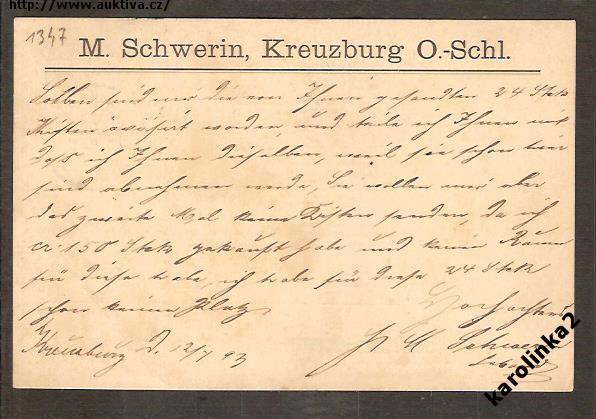 http://www.auktiva.cz/
1347
M. Schwerin, Kreuzburg O.-Schl.
Soeben sind mir die von Ihnen gesandten 24 Stck
Kisten avisirt worden, und teile ich Ihnen mit
daß ich Ihnen dieselben, weil sie schon hier
sind abnehmen werde, Sie wollen mir aber
das zweite Mal keine Kisten senden, da ich
ca. 150 Stck gekauft habe und keinen Raum
für diese habe, ich habe für diese 24 Stck
schon keinen Platz
Hochachtend
Kreuzburg d. 12/1 93
M Schwerin
karolinka2